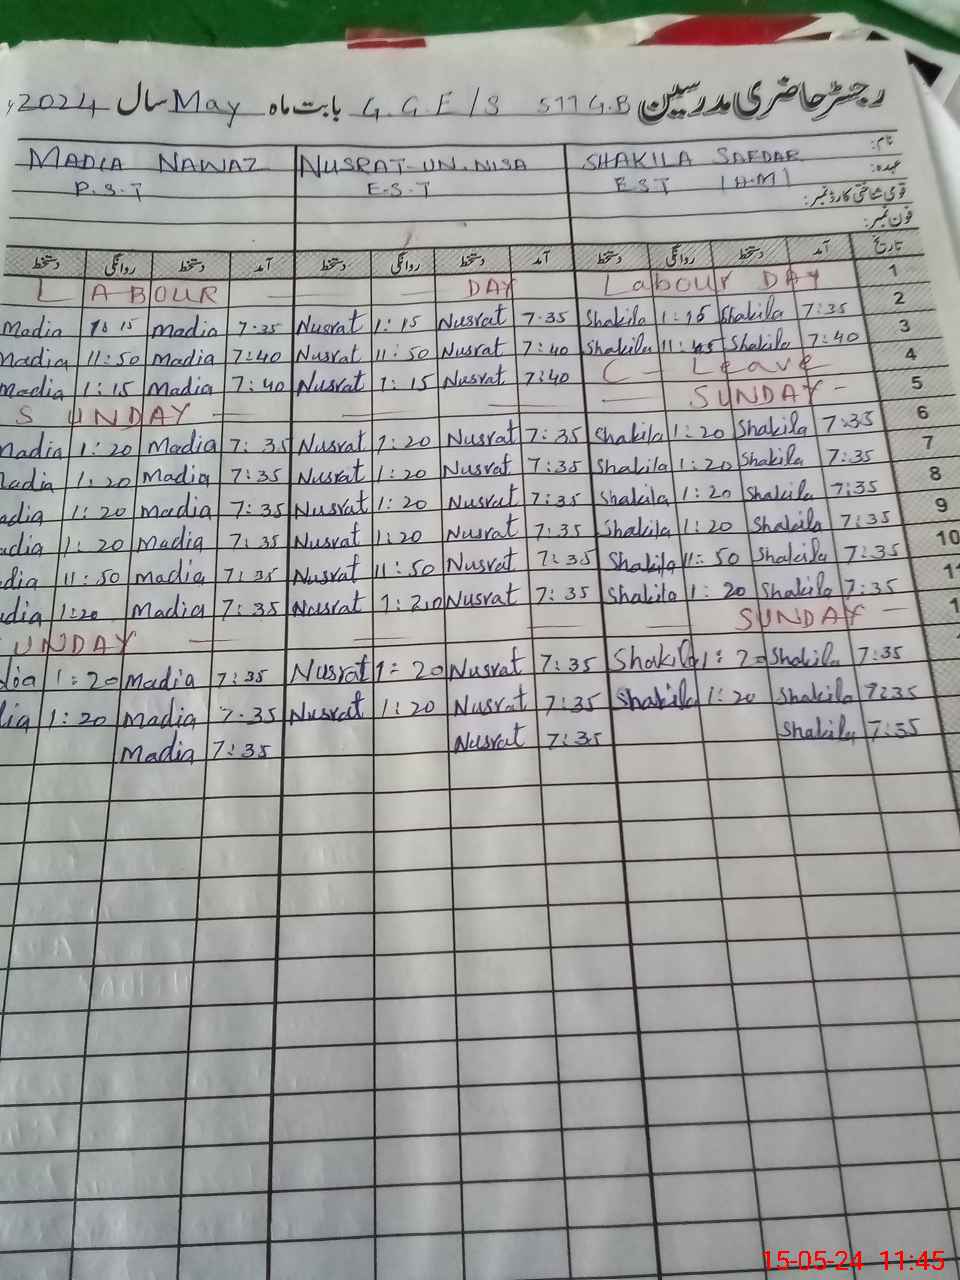 رجسٹر حاضری مدرسین G.G.E/S 577 G.B بابت ماہ May سال 2024ء
نام: SHAKILA SAFDAR NUSRAT-UN-NISA MADIA NAWAZ
عہدہ: EST (H.M) E.S.T P.S.T
قومی شناختی کارڈ نمبر:
فون نمبر:
تاریخ آمد دستخط روانگی دستخط آمد دستخط روانگی دستخط آمد دستخط روانگی دستخط
LABOUR — — — DAY Labour DAY 1
Madia 1:15 Madia 7:35 Nusrat 1:15 Nusrat 7:35 Shakila 1:15 Shakila 7:35 2
Madia 11:50 Madia 7:40 Nusrat 11:50 Nusrat 7:40 Shakila 11:45 Shakila 7:40 3
Madia 1:15 Madia 7:40 Nusrat 1:15 Nusrat 7:40 C - Leave 4
SUNDAY — — — — — SUNDAY - 5
Madia 1:20 Madia 7:35 Nusrat 1:20 Nusrat 7:35 Shakila 1:20 Shakila 7:35 6
adia 1:20 Madia 7:35 Nusrat 1:20 Nusrat 7:35 Shakila 1:20 Shakila 7:35 7
adia 1:20 Madia 7:35 Nusrat 1:20 Nusrat 7:35 Shakila 1:20 Shakila 7:35 8
adia 1:20 Madia 7:35 Nusrat 1:20 Nusrat 7:35 Shakila 1:20 Shakila 7:35 9
dia 11:50 Madia 7:35 Nusrat 11:50 Nusrat 7:35 Shakila 11:50 Shakila 7:35 10
dia 1:20 Madia 7:35 Nusrat 1:20 Nusrat 7:35 Shakila 1:20 Shakila 7:35 11
UNDAY — — — — SUNDAY - 1
dia 1:20 Madia 7:35 Nusrat 1:20 Nusrat 7:35 Shakila 1:20 Shakila 7:35
ia 1:20 Madia 7:35 Nusrat 1:20 Nusrat 7:35 Shakila 1:20 Shakila 7:35
Madia 7:35 Nusrat 7:35 Shakila 7:35
15-05-24 11:45